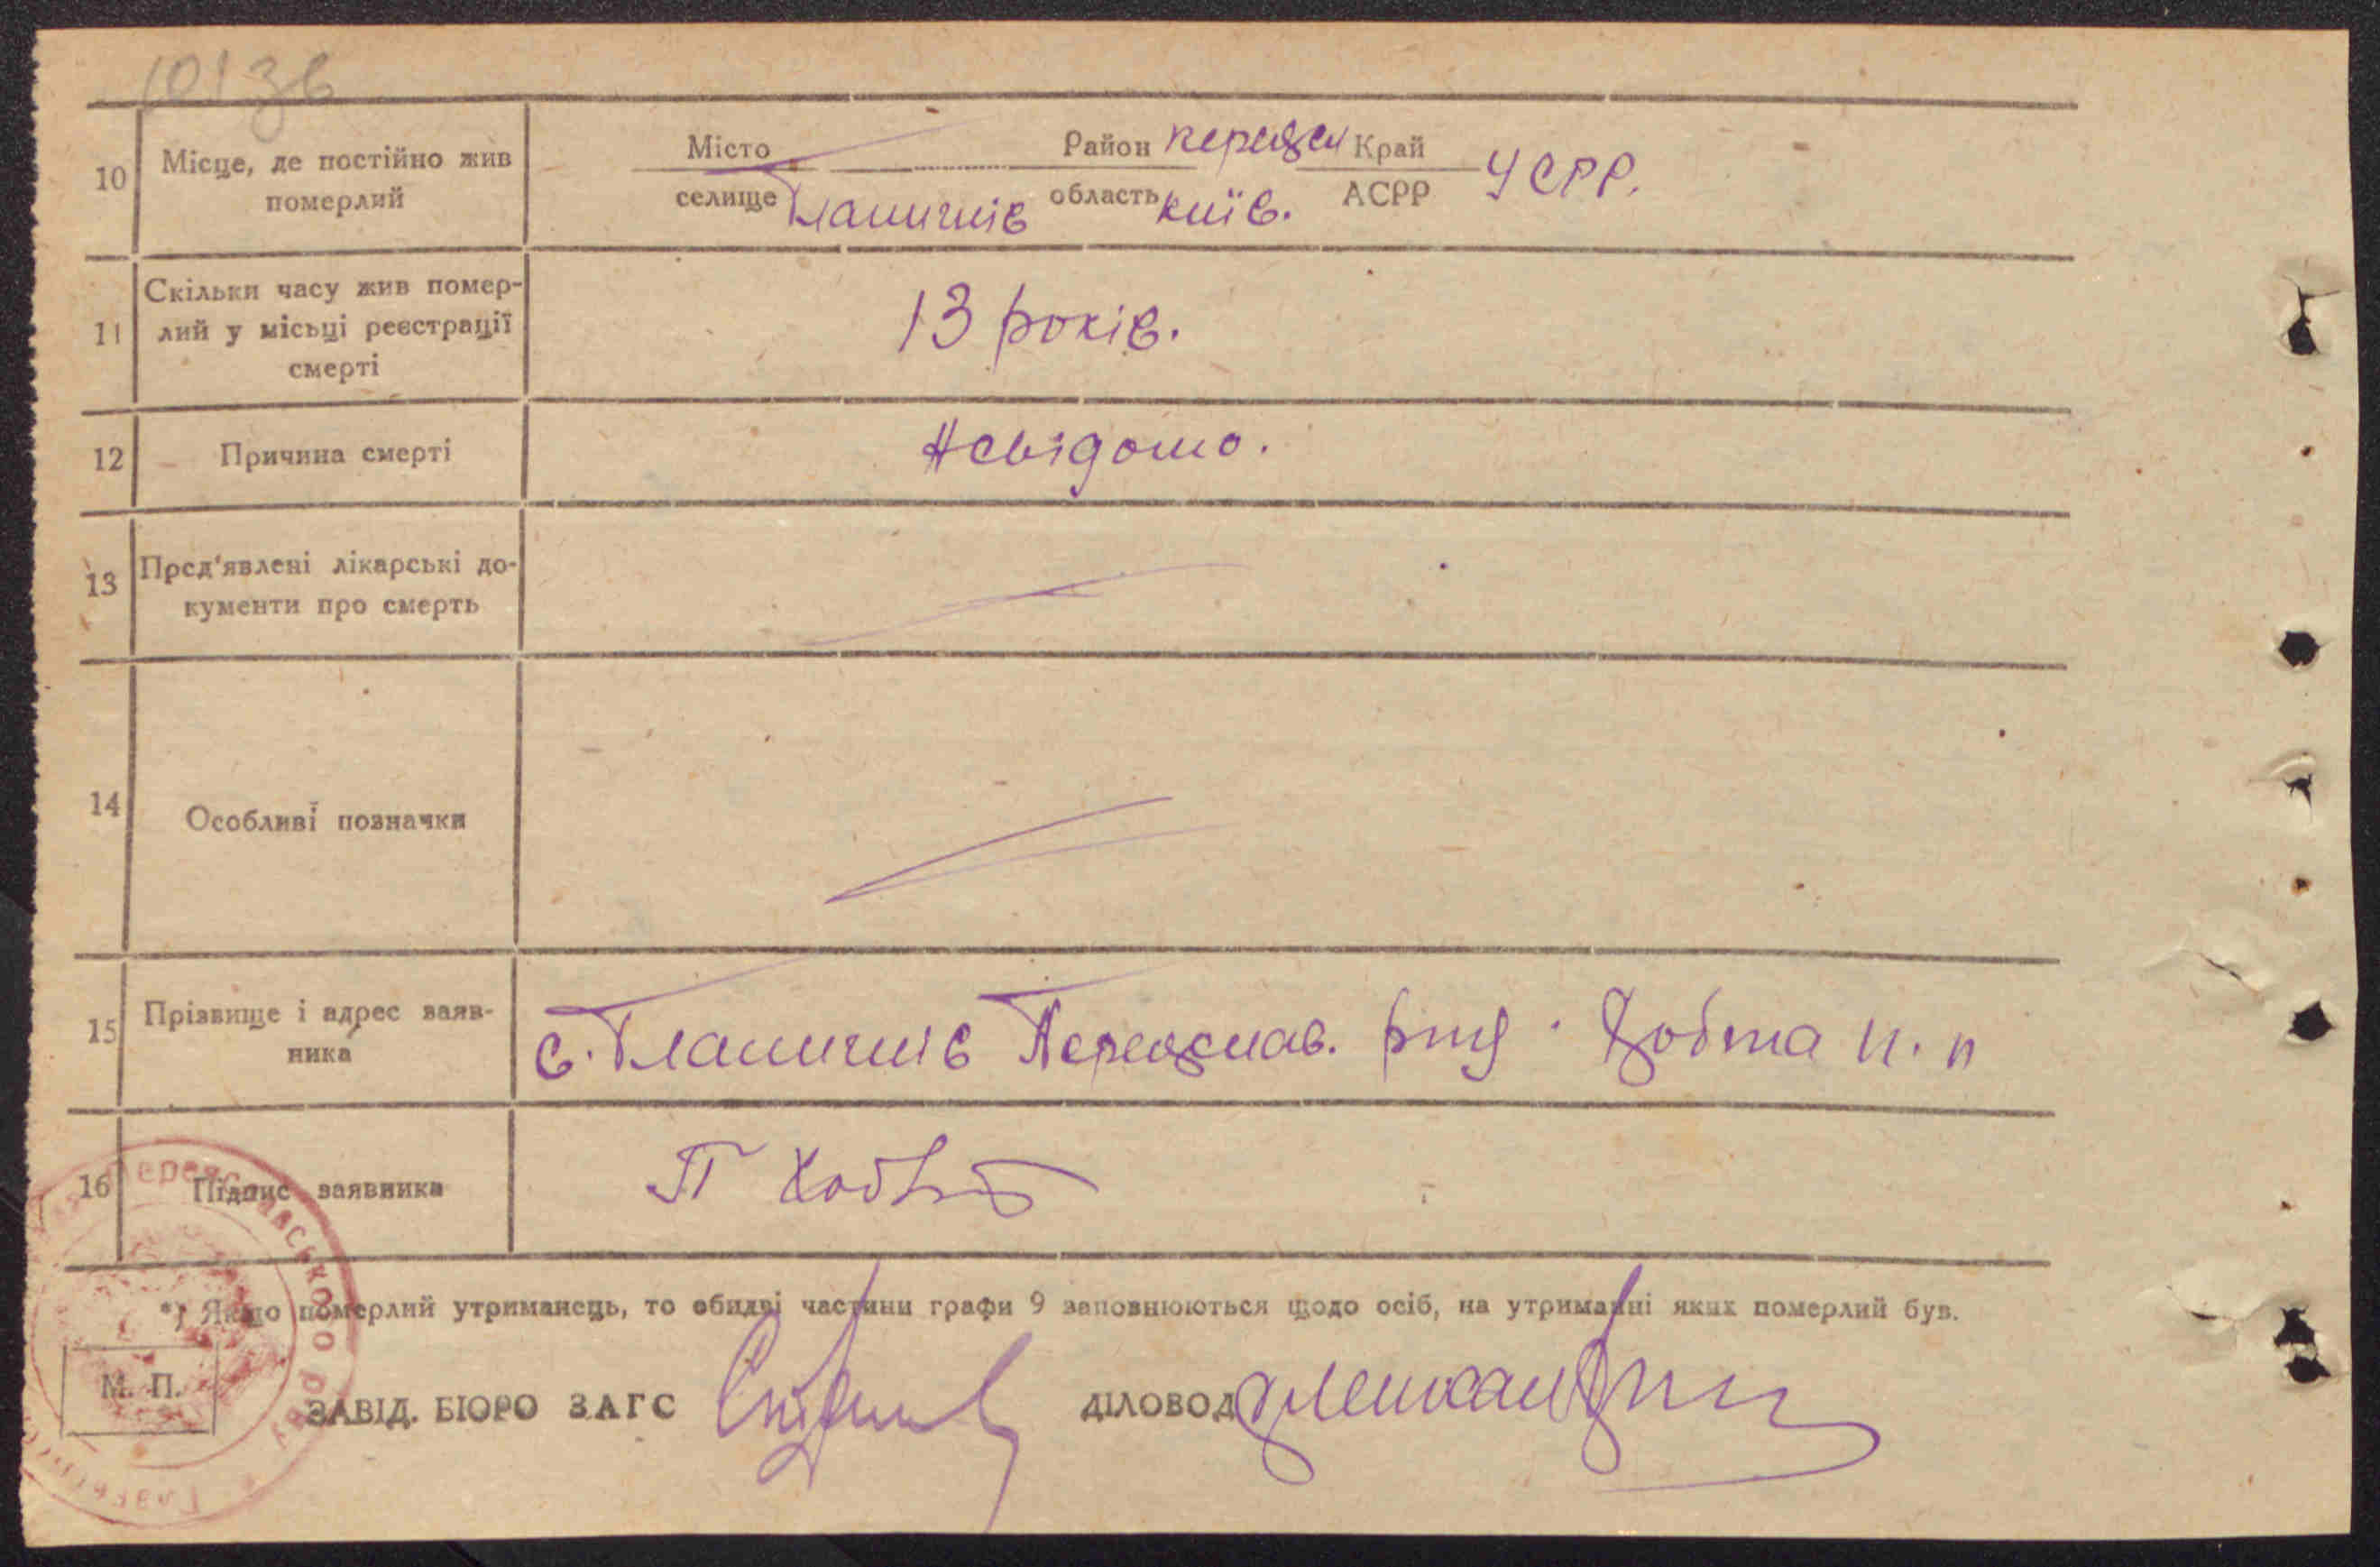 10136
10 Місце, де постійно жив померлий
Місто Район Переясл Край УСРР.
селище Ташинів область Київ. АСРР
11 Скільки часу жив помер-
лий у місьці реєстрації
смерті
13 років.
12 Причина смерті Невідомо.
13 Пред'явлені лікарські до-
кументи про смерть
14 Особливі позначки
15 Прізвище і адрес заяв-
ника
с. Переяслав. р-ну
16 Підпис заявника П
*) Якщо померлий утриманець, то обидві частини графи 9 заповнюються щодо осіб, на утриманні яких померлий був.
М. П.
ЗАВІД. БЮРО ЗАГС
ДІЛОВОД
Переяславського